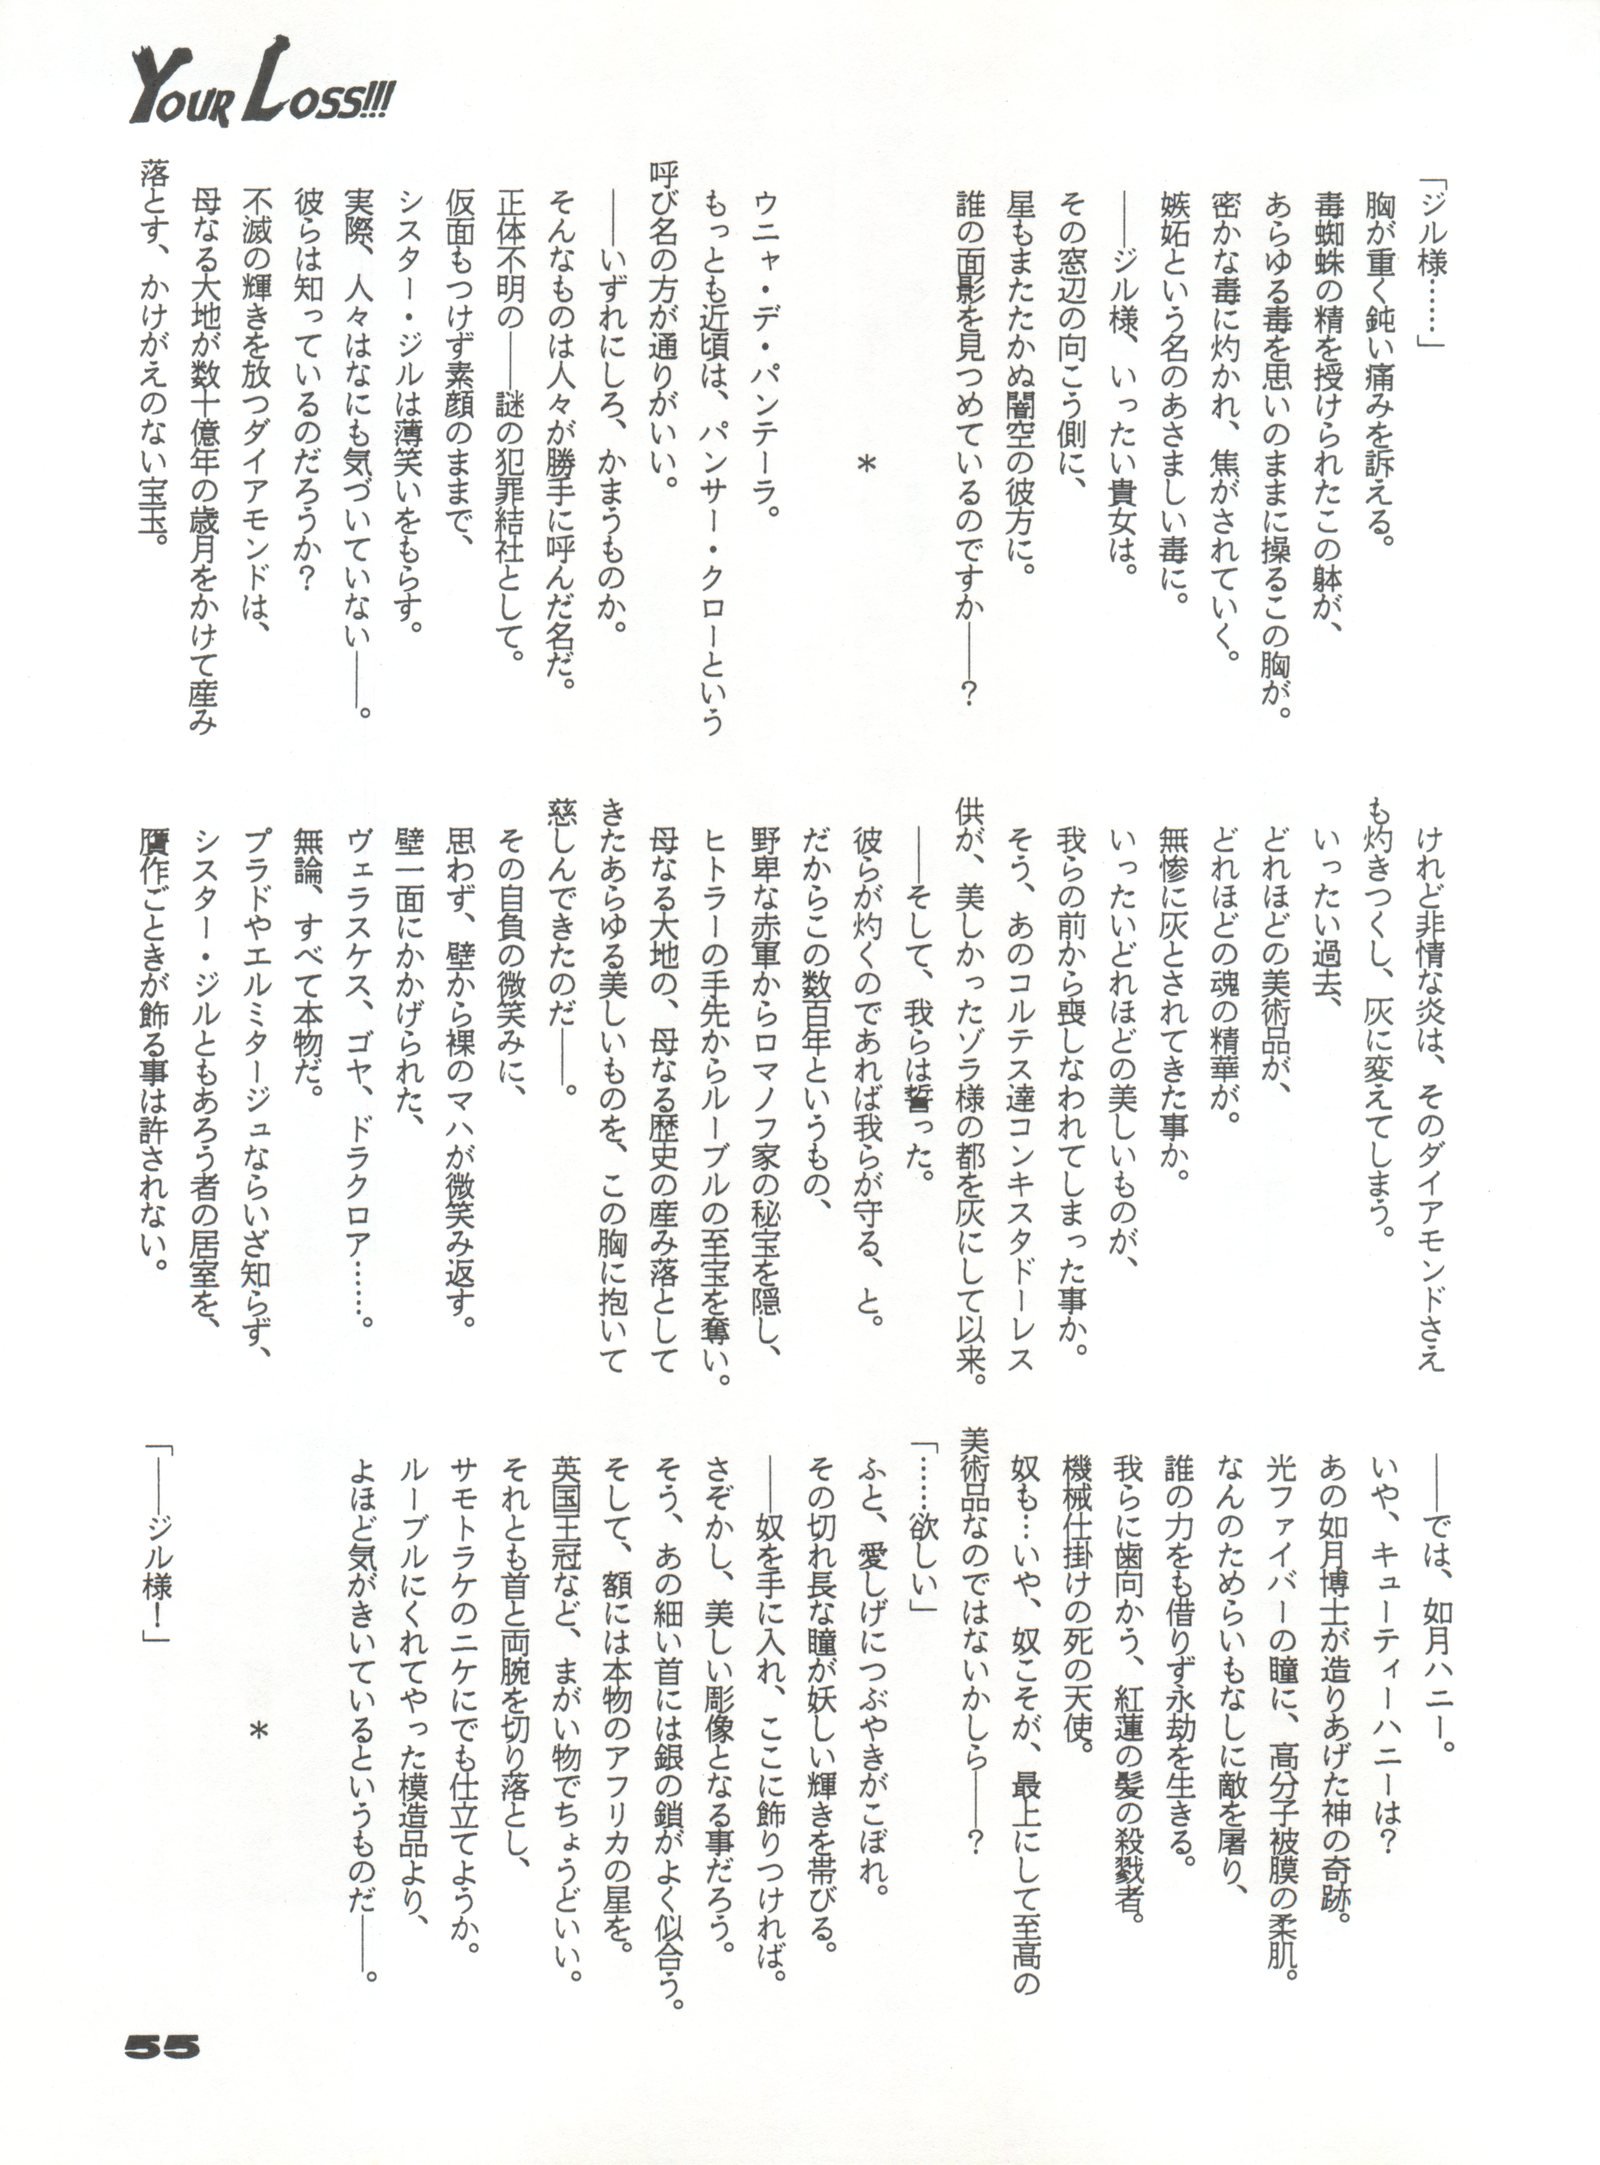 YOUR LOSS!!!
「ジル様……」
胸が重く鈍い痛みを訴える。
毒蜘蛛の精を授けられたこの躰が、
あらゆる毒を思いのままに操るこの胸が。
密かな毒に灼かれ、焦がされていく。
嫉妬という名のあさましい毒に。
――ジル様、いったい貴女は。
その窓辺の向こう側に、
星もまたたかぬ闇空の彼方に。
誰の面影を見つめているのですか――？
＊
ウニャ・デ・パンテーラ。
もっとも近頃は、パンサー・クローという
呼び名の方が通りがいい。
――いずれにしろ、かまうものか。
そんなものは人々が勝手に呼んだ名だ。
正体不明の――謎の犯罪結社として。
仮面もつけず素顔のままで、
シスター・ジルは薄笑いをもらす。
実際、人々はなにも気づいていない――。
彼らは知っているのだろうか？
不滅の輝きを放つダイアモンドは、
母なる大地が数十億年の歳月をかけて産み
落とす、かけがえのない宝玉。
けれど非情な炎は、そのダイアモンドさえ
も灼きつくし、灰に変えてしまう。
いったい過去、
どれほどの美術品が、
どれほどの魂の精華が。
無惨に灰とされてきた事か。
いったいどれほどの美しいものが、
我らの前から喪しなわれてしまった事か。
そう、あのコルテス達コンキスタドーレス
供が、美しかったゾラ様の都を灰にして以来。
――そして、我らは誓った。
彼らが灼くのであれば我らが守る、と。
だからこの数百年というもの、
野卑な赤軍からロマノフ家の秘宝を隠し、
ヒトラーの手先からルーブルの至宝を奪い。
母なる大地の、母なる歴史の産み落として
きたあらゆる美しいものを、この胸に抱いて
慈しんできたのだ――。
その自負の微笑みに、
思わず、壁から裸のマハが微笑み返す。
壁一面にかかげられた、
ヴェラスケス、ゴヤ、ドラクロア……。
無論、すべて本物だ。
プラドやエルミタージュならいざ知らず、
シスター・ジルともあろう者の居室を、
贋作ごときが飾る事は許されない。
――では、如月ハニー。
いや、キューティーハニーは？
あの如月博士が造りあげた神の奇跡。
光ファイバーの瞳に、高分子被膜の柔肌。
なんのためらいもなしに敵を屠り、
誰の力をも借りず永劫を生きる。
我らに歯向かう、紅蓮の髪の殺戮者。
機械仕掛けの死の天使。
奴も…いや、奴こそが、最上にして至高の
美術品なのではないかしら――？
「……欲しい」
ふと、愛しげにつぶやきがこぼれ。
その切れ長な瞳が妖しい輝きを帯びる。
――奴を手に入れ、ここに飾りつければ。
さぞかし、美しい彫像となる事だろう。
そう、あの細い首には銀の鎖がよく似合う。
そして、額には本物のアフリカの星を。
英国王冠など、まがい物でちょうどいい。
それとも首と両腕を切り落とし、
サモトラケのニケにでも仕立てようか。
ルーブルにくれてやった模造品より、
よほど気がきいているというものだ――。
＊
「――ジル様！」
55